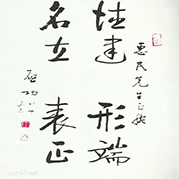 惠民先生正腕
德建
名立
形端
表正
启功